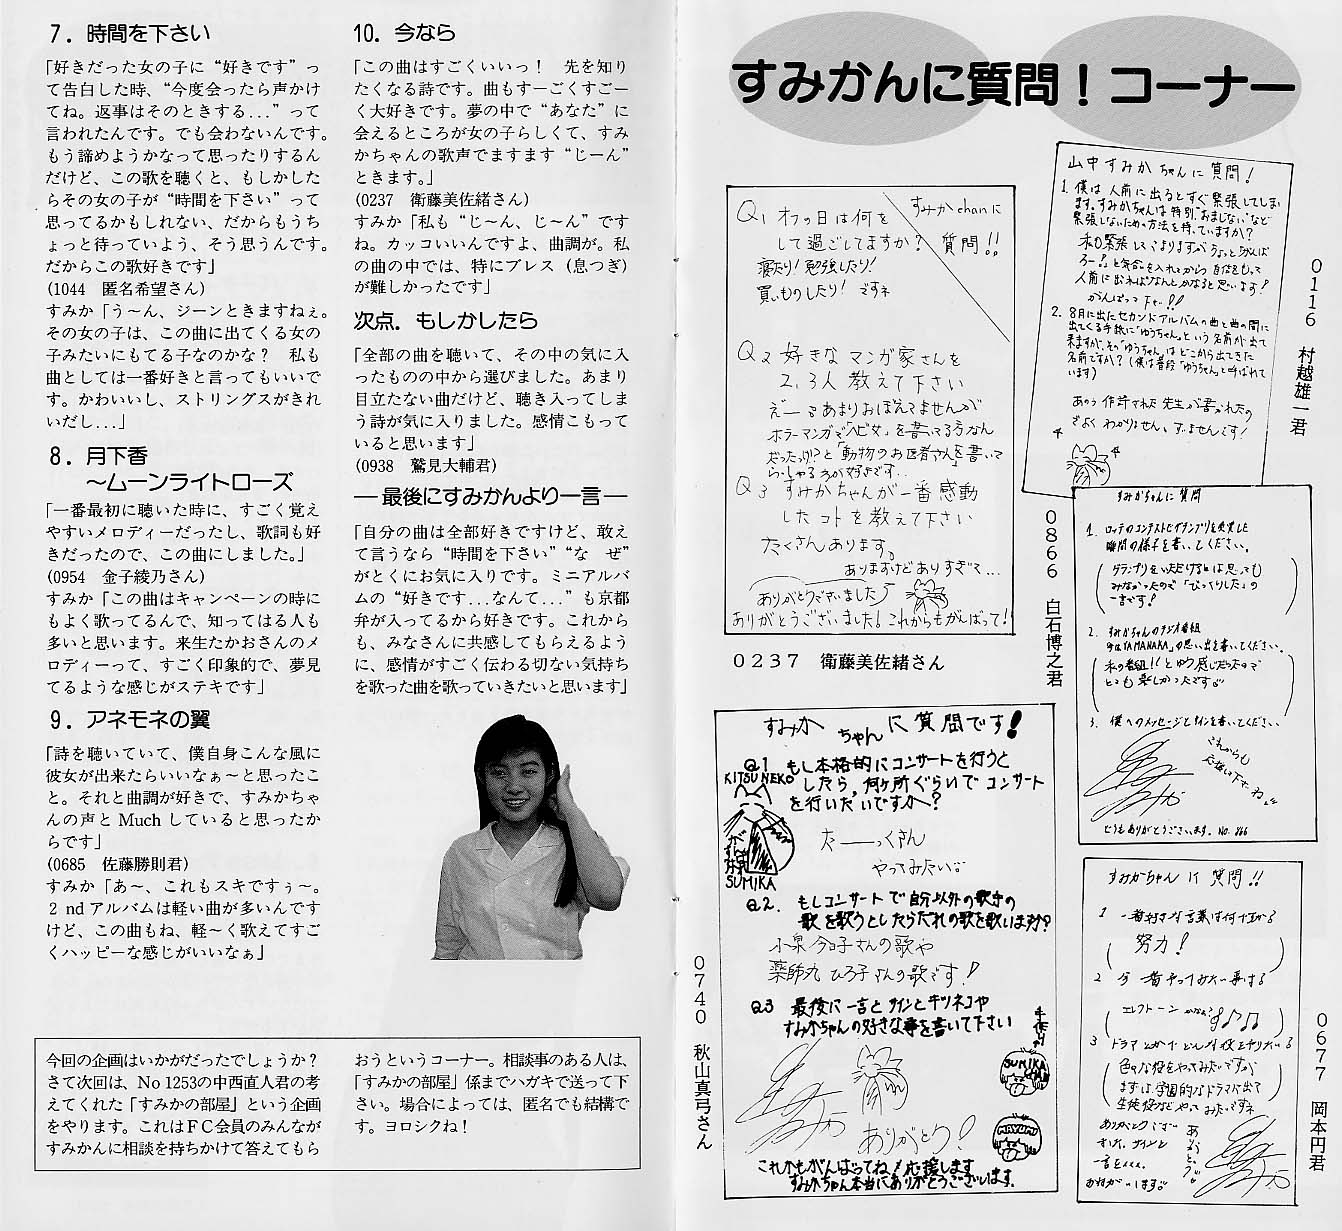 7．時間を下さい
「好きだった女の子に“好きです”っ
て告白した時、“今度会ったら声かけ
てね。返事はそのときする...”って
言われたんです。でも会わないんです。
もう諦めようかなって思ったりするん
だけど、この歌を聴くと、もしかした
らその女の子が“時間を下さい”って
思ってるかもしれない、だからもうち
ょっと待っていよう、そう思うんです。
だからこの歌好きです」
(1044　匿名希望さん)
すみか「う～ん、ジーンときますねぇ。
その女の子は、この曲に出てくる女の
子みたいにもてる子なのかな？　私も
曲としては一番好きと言ってもいいで
す。かわいいし、ストリングスがきれ
いだし...」
8．月下香
～ムーンライトローズ
「一番最初に聴いた時に、すごく覚え
やすいメロディーだったし、歌詞も好
きだったので、この曲にしました。」
(0954　金子綾乃さん)
すみか「この曲はキャンペーンの時に
もよく歌ってるんで、知ってはる人も
多いと思います。来生たかおさんのメ
ロディーって、すごく印象的で、夢見
てるような感じがステキです」
9．アネモネの翼
「詩を聴いていて、僕自身こんな風に
彼女が出来たらいいなぁ～と思ったこ
と。それと曲調が好きで、すみかちゃ
んの声と Much していると思ったか
らです」
(0685　佐藤勝則君)
すみか「あ～、これもスキですぅ～。
2 nd アルバムは軽い曲が多いんです
けど、この曲もね、軽～く歌えてすご
くハッピーな感じがいいなぁ」
10．今なら
「この曲はすごくいいっ！　先を知り
たくなる詩です。曲もすーごくすごー
く大好きです。夢の中で“あなた”に
会えるところが女の子らしくて、すみ
かちゃんの歌声でますます“じーん”
ときます。」
(0237　衛藤美佐緒さん)
すみか「私も“じ～ん、じ～ん”です
ね。カッコいいんですよ、曲調が。私
の曲の中では、特にブレス（息つぎ）
が難しかったです」
次点．もしかしたら
「全部の曲を聴いて、その中の気に入
ったものの中から選びました。あまり
目立たない曲だけど、聴き入ってしま
う詩が気に入りました。感情こもって
いると思います」
(0938　鷲見大輔君)
―最後にすみかんより一言―
「自分の曲は全部好きですけど、敢え
て言うなら“時間を下さい”“な　ぜ”
がとくにお気に入りです。ミニアルバ
ムの“好きです...なんて...”も京都
弁が入ってるから好きです。これから
も、みなさんに共感してもらえるよう
に、感情がすごく伝わる切ない気持ち
を歌った曲を歌っていきたいと思います」
今回の企画はいかがだったでしょうか？
さて次回は、No 1253の中西直人君の考
えてくれた「すみかの部屋」という企画
をやります。これはＦＣ会員のみんなが
すみかんに相談を持ちかけて答えてもら
おうというコーナー。相談事のある人は、
「すみかの部屋」係までハガキで送って下
さい。場合によっては、匿名でも結構で
す。ヨロシクね！
すみかんに質問！コーナー
すみかchanに
質問!!
Q1 オフの日は何を
して過ごしてますか？
寝たり！勉強したり！
買いものしたり！ですネ
Q2 好きなマンガ家さんを
2,3人教えて下さい
えーっあまりおぼえてませんが
ホラーマンガで「ヘビ女」を書いてる方なん
だったっけ？と「動物のお医者さん」を書いて
らっしゃる方が好きです..
Q3 すみかちゃんが一番感動
したコトを教えて下さい
たくさんあります。
ありますけどありすぎて...
ありがとうございました
ありがとうございました！これからもがんばって！
０２３７　衛藤美佐緒さん
山中すみかちゃんに質問！
1. 僕は人前に出るとすぐ緊張してしまい
ます。すみかちゃんは特別“おまじない”など
緊張しないための方法を持っていますか？
私も緊張しいこまりますがちょっとがんば
ろー！と気合を入れてから自信をもって
人前に出ればなんとかなると思います！
がんばって下さい!!
2. 8月に出たセカンドアルバムの曲と曲の間に
出てくる手紙に「ゆうちゃん」という名前が出て
来ますが、その「ゆうちゃん」はどこから出てきた
名前ですか？（僕は普段「ゆうちゃん」と呼ばれて
います）
あのう作詞された先生が書かれたの
でよくわかりません、すいませんです！
０１１６　村越雄一君
すみかちゃんに質問
1. ロッテのコンテストでグランプリを受賞した
瞬間の様子を書いてください。
グランプリをいただけるとは思っても
みなかったので「びっくりした」の
一言です！
2. すみかちゃんのラジオ番組
YAMANAKA」の思い出を書いてください。
私の番組!!とゆう感じだったので
とても楽しかったです。
3. 僕へのメッセージとサインを書いてください
これからも
応援して下さいね
どうもありがとうございます。No. 866
０８６６　白石博之君
すみかちゃんに質問です！
Q1 もし本格的にコンサートを行うと
したら、何ヶ所ぐらいでコンサート
を行いたいですか？
KITSUNEKO
SUMIKA
たーーっくさん
やってみたい。
Q2. もしコンサートで自分以外の歌手の
歌を歌うとしたらだれの歌を歌いますか？
小泉今日子さんの歌や
薬師丸ひろ子さんの歌です！
Q3 最後に一言とサインとキツネコや
すみかちゃんの好きな事を書いて下さい
SUMIKA
MAYUMI
ありがとう！
これからもがんばってね！応援します
すみかちゃん本当にありがとうございます。
０７４０　秋山真弓さん
すみかちゃんに質問!!
1 一番好きな言葉は何ですか
努力！
2 今一番やってみたい事は
エレクトーンかな？
3 ドラマとかでどんな役をやりたい
色々な役をやってみたいですが
まずは、学園的なドラマに出て
生徒役などやってみたいですネ
ありがとうございました。サインと
一言を
おねがいします。
ありがとう
０６７７　岡本円君